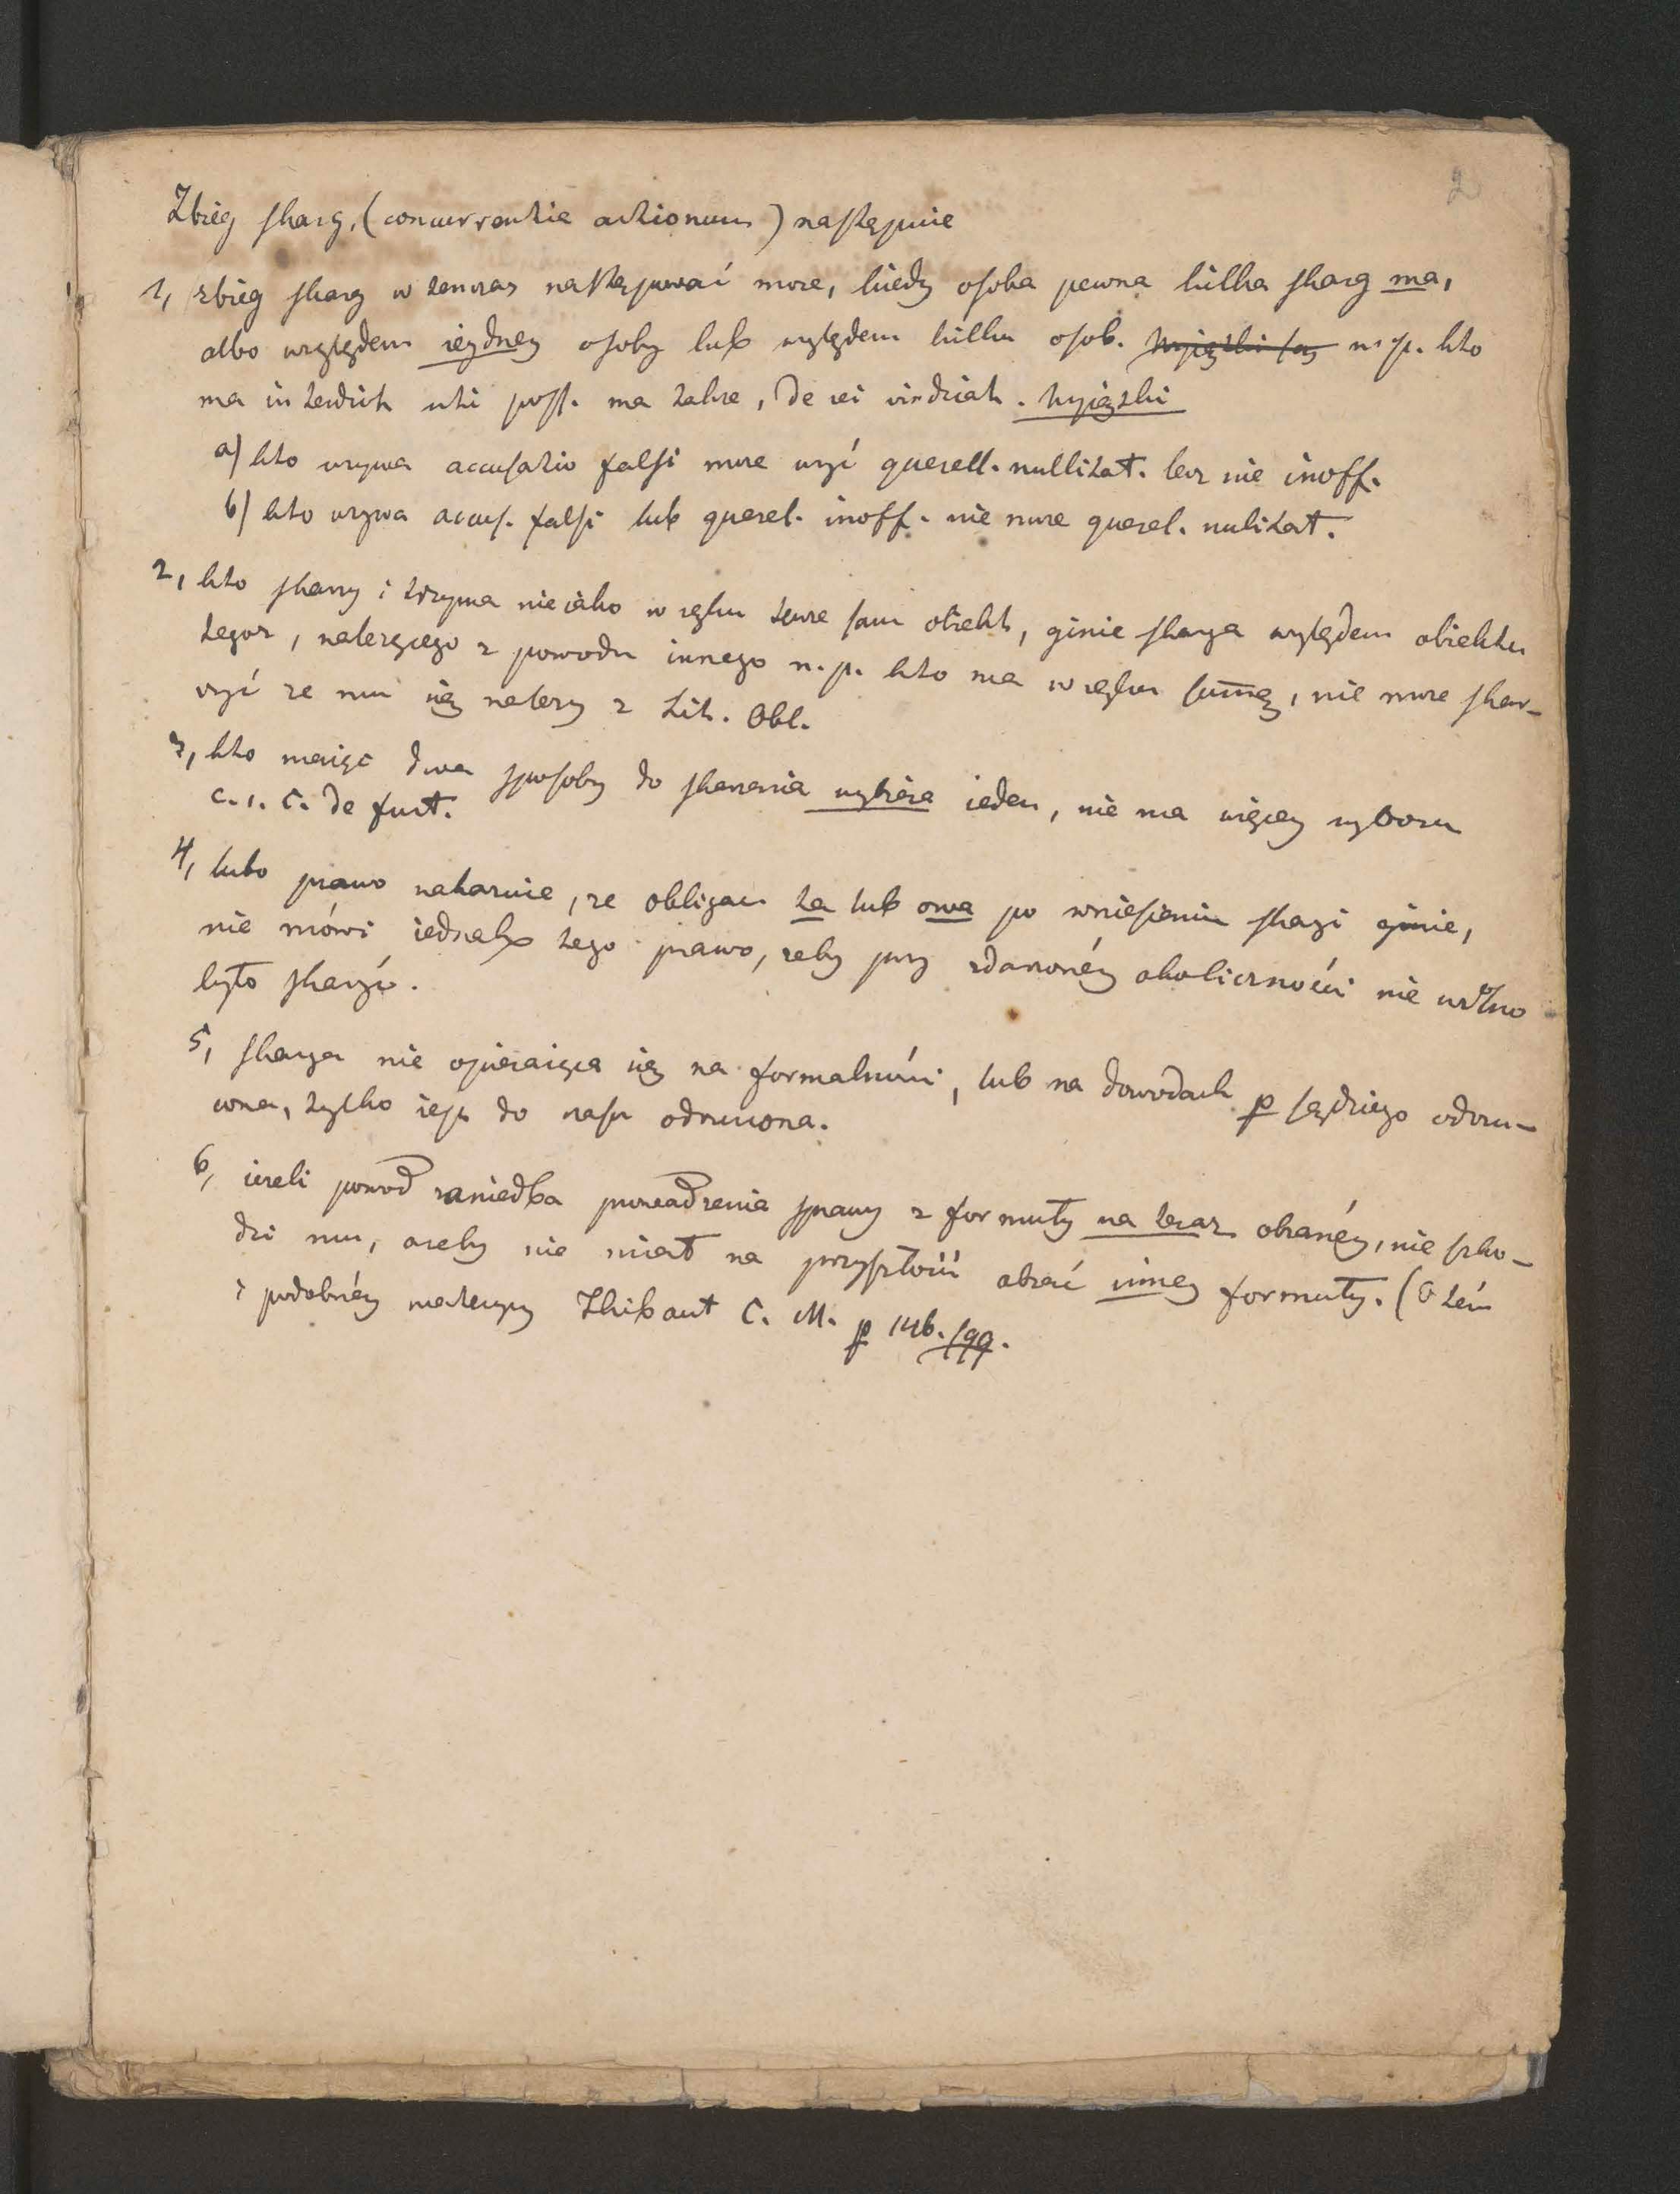 2
Zbieg skarg, (concurrentia actionum) następuie
1, zbieg skarg w tenczas następować może, kiedy osoba pewna kilka skarg ma,
albo względem ieydney osoby lub względem kilku osob. Wyiątki są n. p. kto
ma interdict uti poss. ma także, de rei vindicat. Wyiątki
a) kto używa accusatio falsi może użyć querell. nullitat. lecz nie inoff.
b) kto używa accus. falsi lub querel. inoff. nie może querel. nulitat.
2, kto skarzy i trzyma nieiako w ręku tenże sam obiekt, ginie skarga względem obiektu
tegoż, należącego z powodu innego n. p. kto ma w ręku summę, nie może skar-
żyć że mu się należy z tit. Obl.
3, kto maiąc dwa sposoby do skarzenia wybiera ieden, nie ma więcey wyboru
c. 1. C. de furt.
4, lubo prawo nakazuie, że obligac. ta lub owa po wniesieniu skargi ginie,
nie mówi iednak tego prawo, żeby przy zdarzonéy okoliczności nie wolno
było skarżyć.
5, skarga nie opieraiąca się na formalności, lub na dowodach p sędziego odrzu-
cona, tylko iest do czasu odrzucona.
6, ieżeli powod zaniedba prowadzenia sprawy z formuły na teraz obranéy, nie szko-
dzi mu, ażeby nie miał na przyszłość obrać inney formuły. (O tém
i podobnéy materyi Thibaut C. M. p 146. sqq.